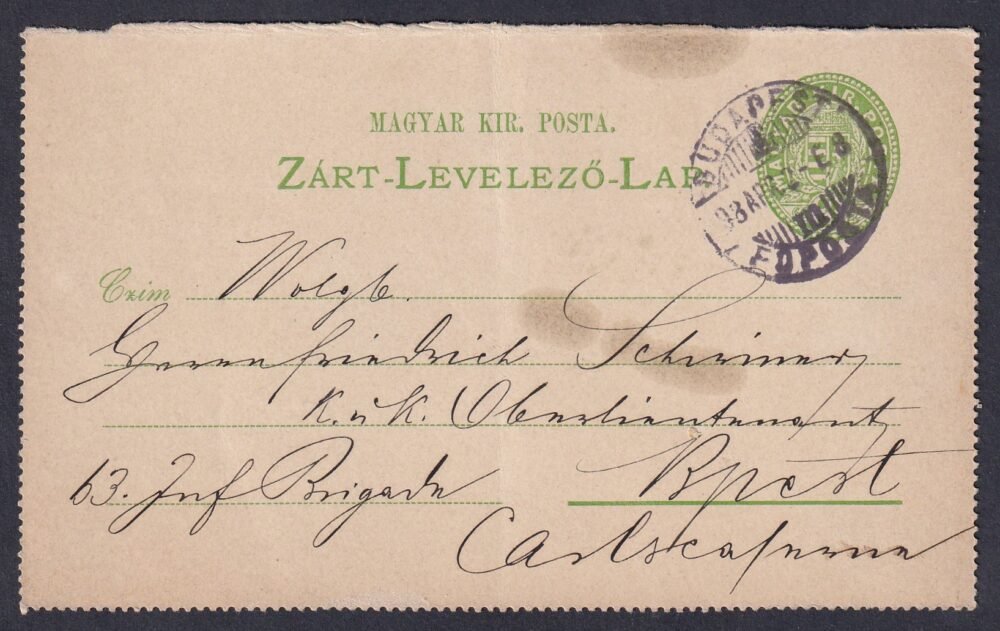 MAGYAR KIR. POSTA.
ZÁRT-LEVELEZŐ-LAP
BUDAPEST
FŐPOSTA
Czim Wolgb.
Herrn Friedrich
K. u. K. Oberlieutenant
63. Inf Brigade Bpest
Carlscaserne